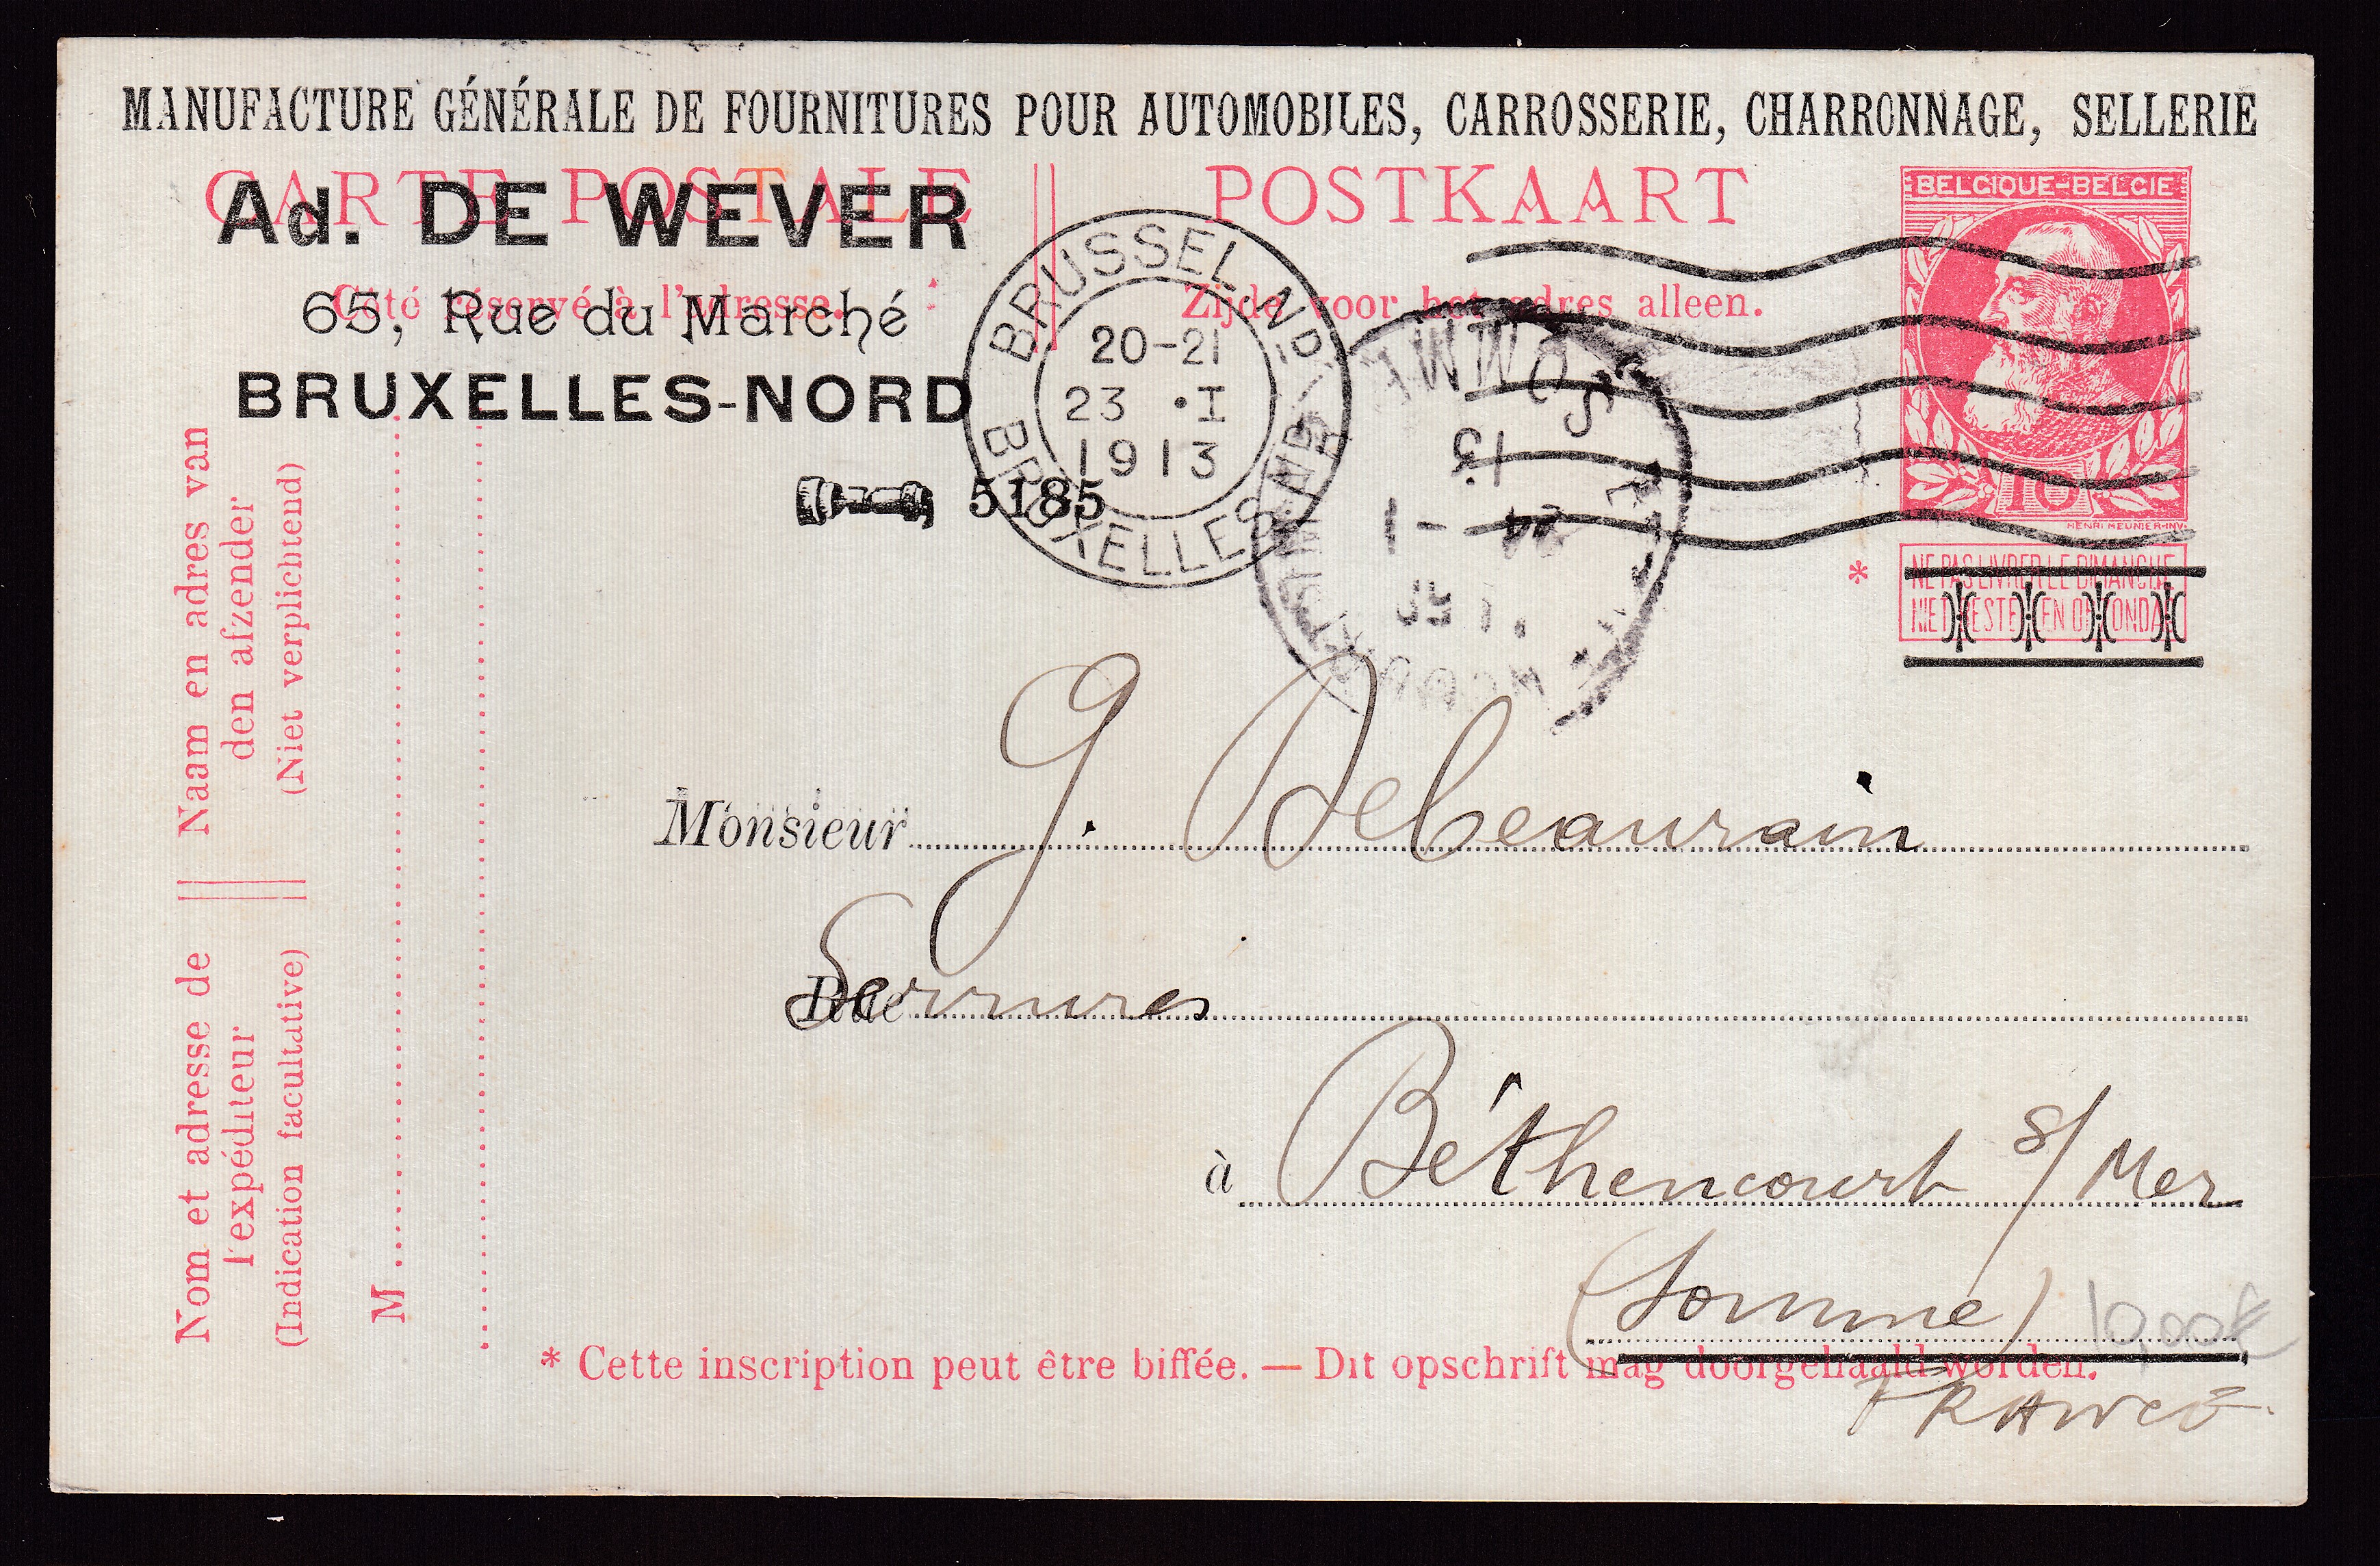 MANUFACTURE GÉNÉRALE DE FOURNITURES POUR AUTOMOBILES, CARROSSERIE, CHARRONNAGE, SELLERIE
CARTE POSTALE
POSTKAART
BELGIQUE-BELGIË
Ad. DE WEVER
Côté réservé à l'adresse.
Zijde voor het adres alleen.
65, Rue du Marché
BRUXELLES-NORD
5185
BRUSSEL ND
20-21
23 •I
1913
BRUXELLES ND
SOMME
13
24 - 1
10
HENRI MEUNIER-INV.
* NE PAS LIVRER LE DIMANCHE
NIET BESTELLEN OP ZONDAG
Naam en adres van
den afzender
(Niet verplichtend)
Nom et adresse de
l'expéditeur
(Indication facultative)
M
Monsieur G. Debeaurain
Rue Serrures
à Béthencourt s/ Mer
(Somme)
10,00 €
* Cette inscription peut être biffée. — Dit opschrift mag doorgehaald worden.
FRANCE.